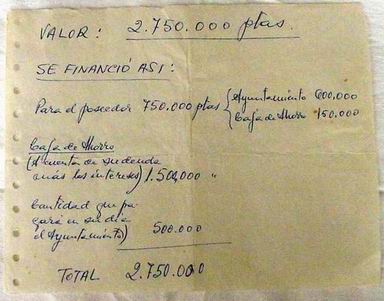 VALOR: 2.750.000 ptas.
SE FINANCIÓ ASI:
Para el poseedor 750.000 ptas { Ayuntamiento 600.000
Caja de Ahorro 150.000
Caja de Ahorro
(A cuenta de su deuda
más los intereses) 1.500,000 "
Cantidad que pa
gará en su día
el Ayuntamiento) 500.000
TOTAL 2.750.000